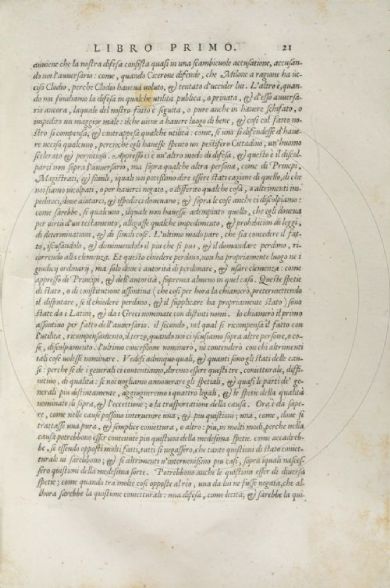 LIBRO PRIMO. 21
auuiene che la nostra difesa consista quasi in una scambieuole accusatione, accusan-
do noi l'auuersario: come, quando Cicerone difende, che Milone a ragione ha uc-
ciso Clodio, perche Clodio haueua uoluto, & tentato d'uccider lui. L'altro è, quan-
do noi fondiamo la difesa in qualche utilità publica, o priuata, & d'esso auuersa-
rio ancora, laquale del nostro fatto è seguita, o pure anche in hauere schifato, o
impedito un maggior male: il che uiene a hauere luogo di bene, & così col fatto no-
stro si compensa, & contrapesa qualche utilità: come, se uno si difendesse d'haue-
re ucciso qualcuno, percioche egli hauesse spento un pestifero Cittadino, un'huomo
scelerato & pernitioso. Appresso ci è un'altro modo di difesa, & questo è il discol-
parci non sopra l'auuersario, ma sopra qualche altra persona, come di Principi,
Magistrati, & simili, iquali noi possiamo dire essere stati cagione di quello, di che
noi siamo incolpati, o per hauerci negato, o differito qualche cosa, o altrimenti im-
pediteci, doue aiutarci, & espedirci doueuano; & sopra le cose anche ci discolpiamo:
come sarebbe, se qualcuno, ilquale non hauesse adempiuto quello, che egli doueua
per uirtù d'un testamento, allegasse qualche impedimento, & prohibition di leggi,
di determinationi, & di simili cose. L'ultimo modo pare, che sia concedere il fat-
to, iscusandolo, & diminuendolo il piu che si puo, & il domandare perdono, ri-
correndo alla clemenza. Et questo chiedere perdono, non ha propriamente luogo ne i
giudicij ordinarij, ma solo doue è autorità di perdonare, & usare clemenza: come
appresso di Principi, & d'est'autorità, suprema almeno in quel caso. Queste spetie
di stato, o di constitutione assuntiua (che così per hora la chiamerò, pretermettendo
il disputare, se il chiedere perdono, & il supplicare ha propriamente stato) sono
state da i Latini, & da i Greci nominate con distinti nomi. Io chiamerò il primo
assuntiuo per fatto dell'auuersario. il secondo, nel qual si ricompensa il fatto con
l'utilità, ricompensamento, il terzo, quando noi ci scusiamo sopra altre persone, o co-
se, discolpamento. l'ultimo concessione nominerò, ne contenderò con chi altrimenti
tali cose uolesse nominare. Vedesi adunque quali, & quanti sono gli stati delle cau-
se: perche se de i generali ci contentiamo, diremo essere questi tre, conietturale, diffi-
nitiuo, di qualità: se noi uogliamo annouerare gli spetiali, & quasi le parti de' ge-
nerali piu distintamente, aggiugneremo i quattro legali, & le spetie della qualità
nominate di sopra, & l'eccettione; o la trasportatione della causa. Ora è da sape-
re, come nelle cause possono interuenire una, & piu quistioni; una, come, doue si
trattasse una pura, & semplice coniettura, o altro: piu, in molti modi, perche nella
causa potrebbono esser contenute piu quistioni della medesima spetie. come accadereb-
be, se essendo opposti molti furti, tutti si negassero, che tante quistioni di stato coniet-
turale ui sarebbono; & se altrimenti n'interuenissino piu casi, sopra iquali nascessi-
sero quistioni della medesima sorte. Potrebbono anche le quistioni esser di diuersa
spetie: come quando tra molte cosi opposte al rio, una da lui ne fusse negata, che al-
lhora sarebbe la quistione conietturale: una difesa, come lecita; & sarebbe la qui-